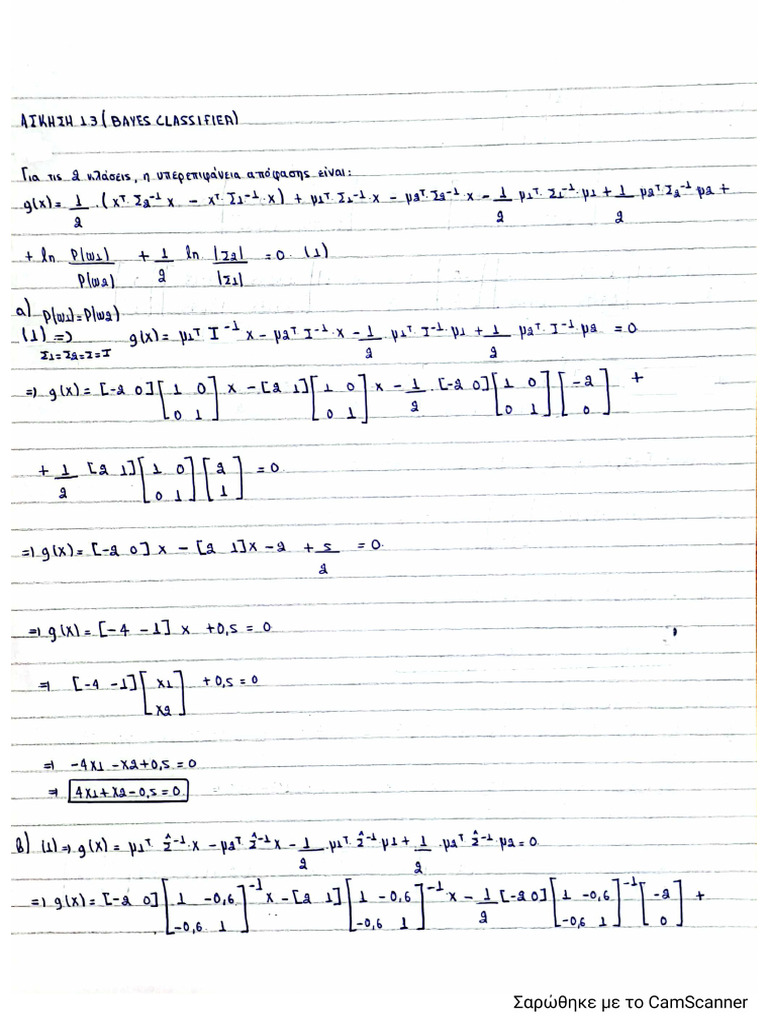 ΑΣΚΗΣΗ 13 (BAYES CLASSIFIER)
Για τις 2 κλάσεις, η υπερεπιφάνεια απόφασης είναι:
g(x) = 1/2 · (xᵀ·Σ2⁻¹ x − xᵀ·Σ1⁻¹·x) + μ1ᵀ·Σ1⁻¹·x − μ2ᵀ·Σ2⁻¹ x − 1/2 μ1ᵀ·Σ1⁻¹·μ1 + 1/2 μ2ᵀ·Σ2⁻¹ μ2 +
+ ln P(ω1)/P(ω2) + 1/2 ln |Σ2|/|Σ1| = 0. (1)
α) P(ω1)=P(ω2)
(1) => g(x) = μ1ᵀ I⁻¹ x − μ2ᵀ I⁻¹·x − 1/2 μ1ᵀ I⁻¹·μ1 + 1/2 μ2ᵀ·I⁻¹·μ2 = 0
Σ1=Σ2=Σ=I
=> g(x) = [-2 0] [1 0; 0 1] x − [2 1] [1 0; 0 1] x − 1/2 · [-2 0] [1 0; 0 1] [-2; 0] +
+ 1/2 [2 1] [1 0; 0 1] [2; 1] = 0
=> g(x) = [-2 0] x − [2 1] x − 2 + 5/2 = 0
=> g(x) = [-4 -1] x + 0,5 = 0
=> [-4 -1] [x1; x2] + 0,5 = 0
=> -4x1 − x2 + 0,5 = 0
=> 4x1 + x2 − 0,5 = 0
β) (1) => g(x) = μ1ᵀ Σ̂⁻¹·x − μ2ᵀ Σ̂⁻¹ x − 1/2 · μ1ᵀ Σ̂⁻¹ μ1 + 1/2 · μ2ᵀ Σ̂⁻¹ μ2 = 0
=> g(x) = [-2 0] [1 -0,6; -0,6 1]⁻¹ x − [2 1] [1 -0,6; -0,6 1]⁻¹ x − 1/2 [-2 0] [1 -0,6; -0,6 1]⁻¹ [-2; 0] +
Σαρώθηκε με το CamScanner